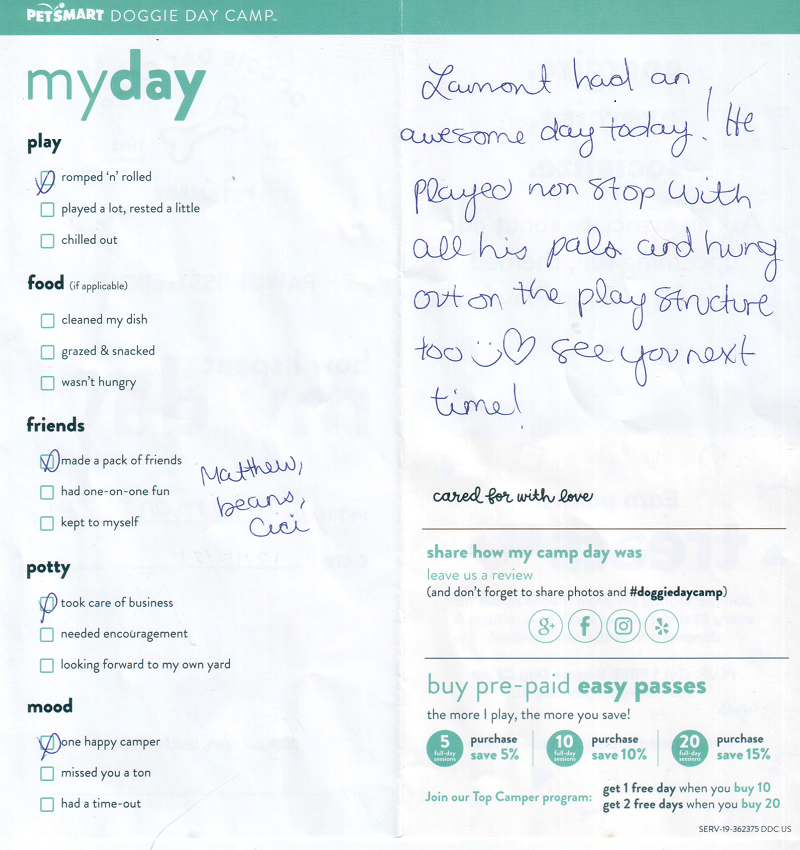 PETSMART DOGGIE DAY CAMP™
myday
play
romped 'n' rolled
played a lot, rested a little
chilled out
food (if applicable)
cleaned my dish
grazed & snacked
wasn't hungry
friends
made a pack of friends
had one-on-one fun
kept to myself
Matthew,
beans,
Cici
potty
took care of business
needed encouragement
looking forward to my own yard
mood
one happy camper
missed you a ton
had a time-out
Lamont had an
awesome day today! He
played non stop with
all his pals and hung
out on the play structure
too see you next
time!
cared for with love
share how my camp day was
leave us a review
(and don't forget to share photos and #doggiedaycamp)
g+ f
buy pre-paid easy passes
the more I play, the more you save!
5 full-day sessions purchase save 5%
10 full-day sessions purchase save 10%
20 full-day sessions purchase save 15%
Join our Top Camper program: get 1 free day when you buy 10
get 2 free days when you buy 20
SERV-19-362375 DDC US